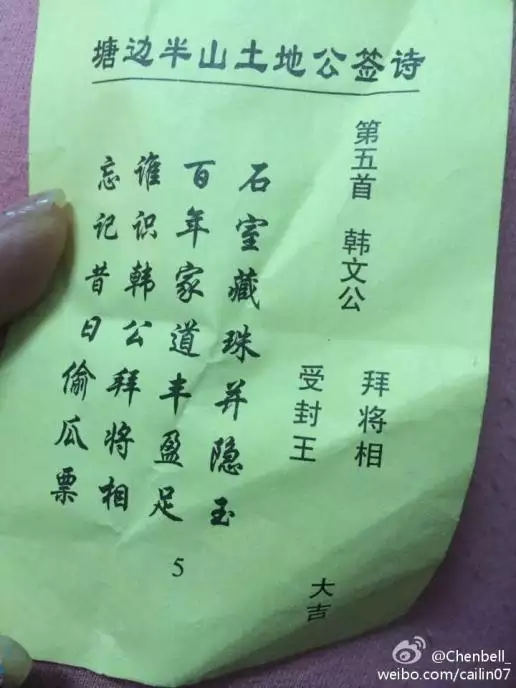 塘边半山土地公签诗
第五首 韩文公
拜将相
受封王
大吉
石室藏珠并隐玉
百年家道丰盈足
谁识韩公拜将相
忘记昔日偷瓜票
5
@Chenbell_
weibo.com/cailin07